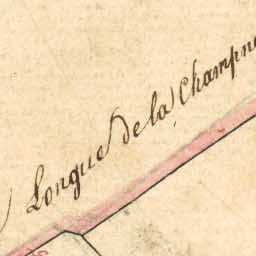 Longue de la Champn